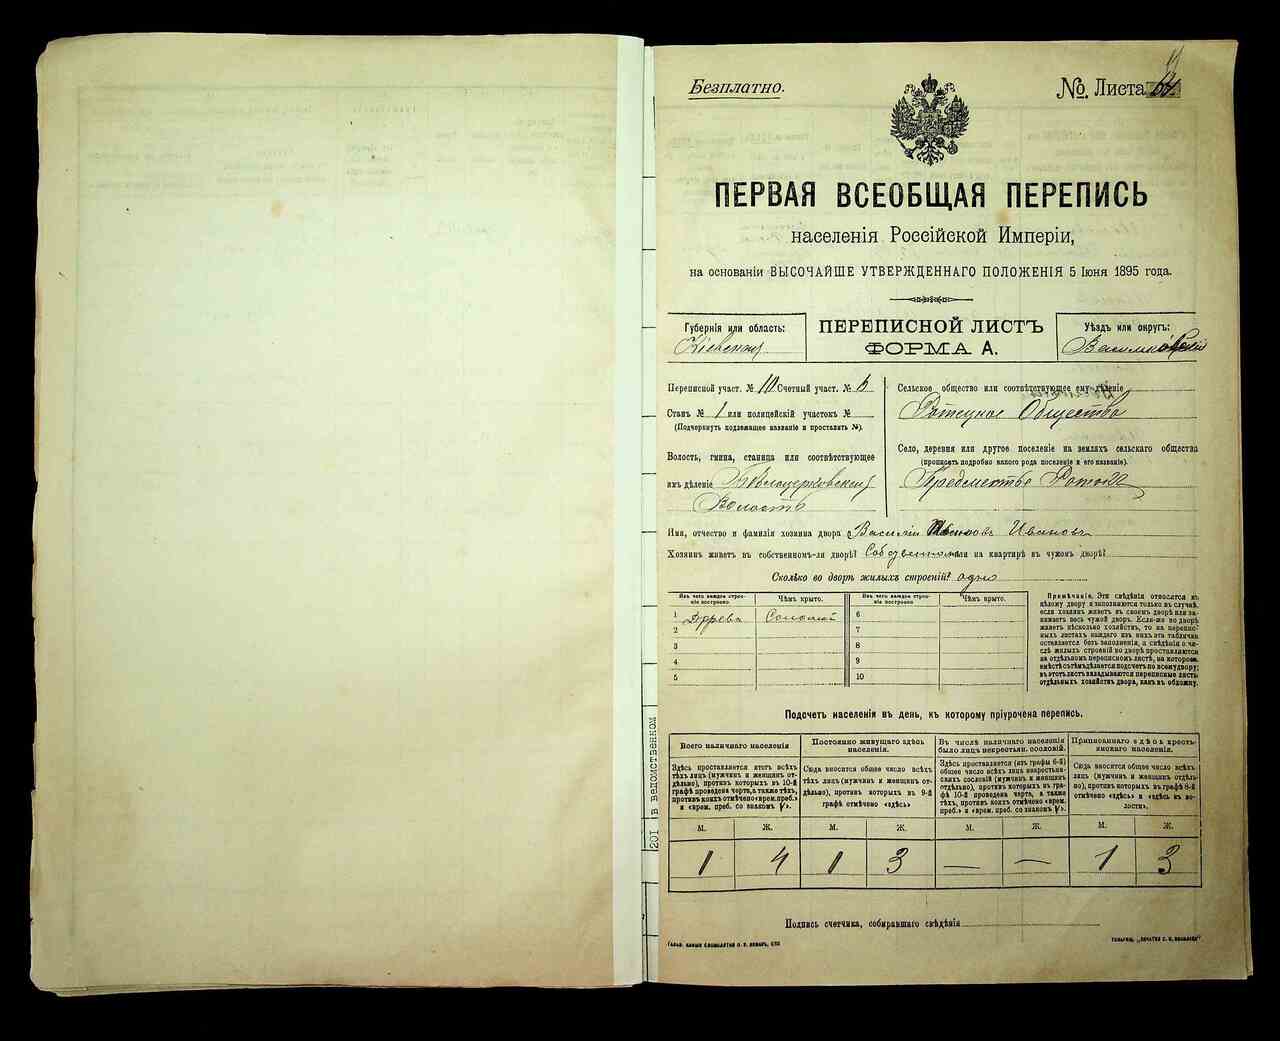 Безплатно.
№. Листа
ПЕРВАЯ ВСЕОБЩАЯ ПЕРЕПИСЬ
населенія Россійской Имперіи,
на основаніи ВЫСОЧАЙШЕ УТВЕРЖДЕННАГО ПОЛОЖЕНІЯ 5 Іюня 1895 года.
Губернія или область:
Кіевская
ПЕРЕПИСНОЙ ЛИСТЪ
ФОРМА А.
Уѣздъ или округъ:
Васильковскій
Переписной участ. № 10 Счетный участ. №
Станъ № 1 или полицейскій участокъ №
(Подчеркнуть подлежащее названіе и проставить №).
Волость, гмина, станица или соотвѣтствующее
имъ дѣленіе Бѣлоцерковская
Волость
Сельское общество или соотвѣтствующее ему дѣленіе
Общество
Село, деревня или другое поселеніе на земляхъ сельскаго общества
(прописать подробно какого рода поселеніе и его названіе).
Предместье Роток
Имя, отчество и фамилія хозяина двора Василій Ивановъ
Хозяинъ живетъ въ собственномъ-ли дворѣ? Собственном или на квартирѣ въ чужомъ дворѣ?
Сколько во дворѣ жилыхъ строеній? одно
Изъ чего каждое строеніе построено.
Чѣмъ крыто.
Изъ чего каждое строеніе построено.
Чѣмъ крыто.
1 Дерева Соломой 6
2 7
3 8
4 9
5 10
Примѣчаніе. Эти свѣдѣнія относятся къ
цѣлому двору и заполняются только въ случаѣ,
если хозяинъ живетъ въ своемъ дворѣ или занимаетъ
весь чужой дворъ. Если-же во дворѣ
живетъ нѣсколько хозяйствъ, то на переписныхъ
листахъ каждаго изъ нихъ эта табличка
оставляется безъ заполненія, а свѣдѣнія о числѣ
жилыхъ строеній во дворѣ проставляются
на отдѣльномъ переписномъ листѣ, на которомъ
вмѣстѣ съ тѣмъ дѣлается подсчетъ по всему двору;
въ этотъ листъ вкладываются переписные листы
отдѣльныхъ хозяйствъ двора, какъ въ обложку.
Подсчетъ населенія въ день, къ которому пріурочена перепись.
Всего наличнаго населенія
Постоянно живущаго здѣсь населенія.
Въ числѣ наличнаго населенія было лицъ некрестьян. сословій.
Приписаннаго здѣсь крестьянскаго населенія.
Здѣсь проставляется итогъ всѣхъ
тѣхъ лицъ (мужчинъ и женщинъ отдѣльно),
противъ которыхъ въ 10-й
графѣ проведена черта, а также тѣхъ,
противъ коихъ отмѣчено «врем. преб.»
и «врем. преб. со знакомъ V».
Сюда вносится общее число всѣхъ
тѣхъ лицъ (мужчинъ и женщинъ отдѣльно),
противъ которыхъ въ 9-й
графѣ отмѣчено «здѣсь»
Здѣсь проставляется (изъ графы 6-й)
общее число всѣхъ лицъ некрестьянскихъ
сословій (мужчинъ и женщинъ
отдѣльно), противъ которыхъ въ графѣ
10-й проведена черта, а также
тѣхъ, противъ коихъ отмѣчено «врем.
преб.» и «врем. преб. со знакомъ V».
Сюда вносится общее число всѣхъ
лицъ (мужчинъ и женщинъ отдѣльно),
противъ которыхъ въ графѣ 8-й
отмѣчено «здѣсь» и «здѣсь въ волости».
М. Ж. М. Ж. М. Ж. М. Ж.
1 4 1 3 — — 1 3
Подпись счетчика, собиравшаго свѣдѣнія
201 в ведомственном